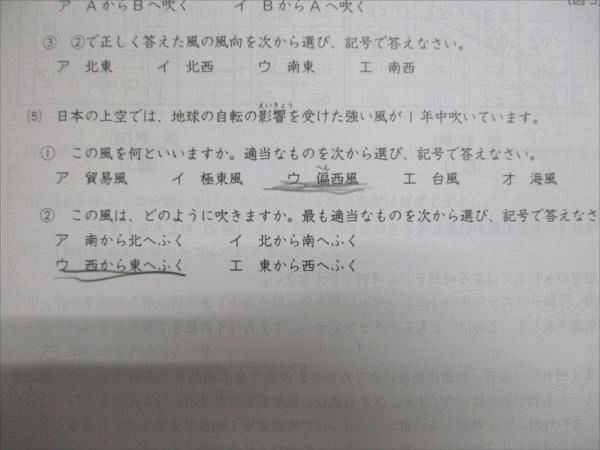 ア AからBへ吹く イ BからAへ吹く
③ ②で正しく答えた風の風向を次から選び、記号で答えなさい。
ア 北東 イ 北西 ウ 南東 エ 南西
えいきょう
(5) 日本の上空では、地球の自転の影響を受けた強い風が1年中吹いています。
① この風を何といいますか。適当なものを次から選び、記号で答えなさい。
へん
ア 貿易風 イ 極東風 ウ 偏西風 エ 台風 オ 海風
② この風は、どのように吹きますか。最も適当なものを次から選び、記号で答えなさ
ア 南から北へふく イ 北から南へふく
ウ 西から東へふく エ 東から西へふく